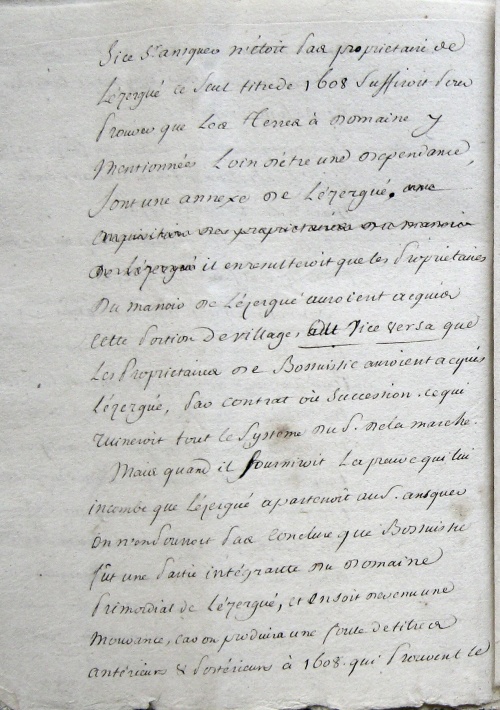 Si ce Sr. ansquer n'étoit pas proprietaire de
Lézergué ce seul titre de 1608 suffiroit pour
prouver que les Terres à domaine y
mentionnées Loin d'être une dependance,
sont une annexe de Lézergué.
des proprietaires du manoir
de Lézergué il en resulteroit que les Proprietaires
du manoir de Lézergué auroient acquis
cette portion de village, Vice versa que
les proprietaires de Bossuistic auroient acquis
Lézergué, par contrat où succession. ce qui
ruineroit tout le systeme du S. de la marche.
Mais quand il fourniroit la preuve qui lui
incombe que Lézergué apartenoit au S. ansquer
on n'en pouroit pas conclure que Bossuistic
fut une partie intégrante du domaine
primordial de Lézergué, et en soit devenu une
mouvance, car on produira une foule de titres
antérieurs & postérieurs à 1608. qui prouvent le